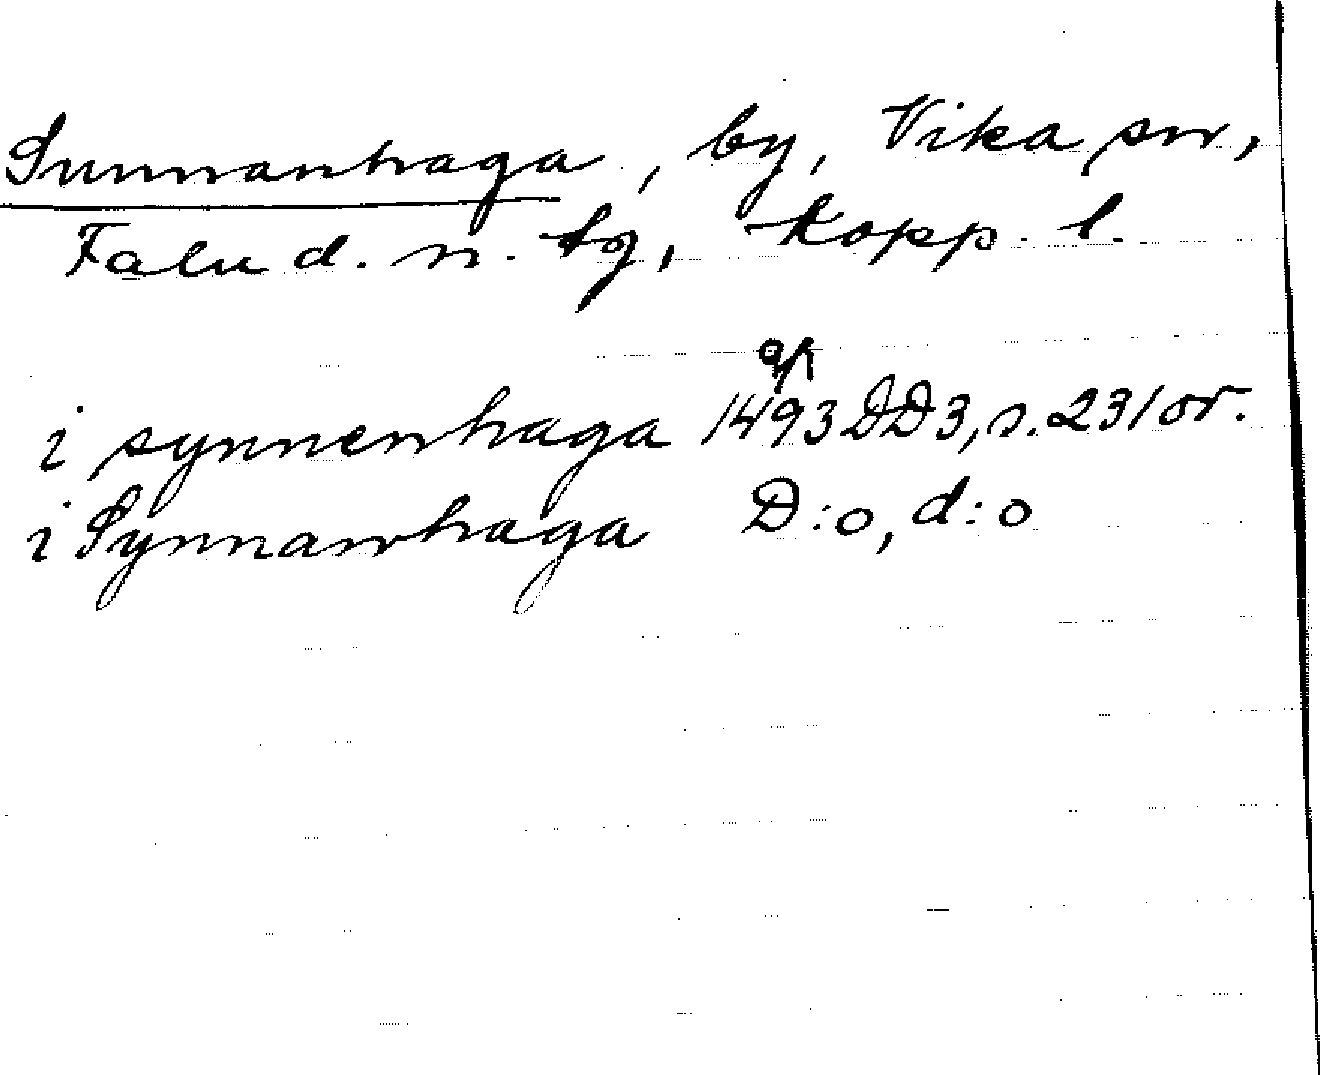 Sunnanhaga, by, Vika sn,
Falu d. n. tg, Kopp. l.
i synnenhaga 1493 DD3, s. 231 or.
i Synnanhaga D:o, d:o